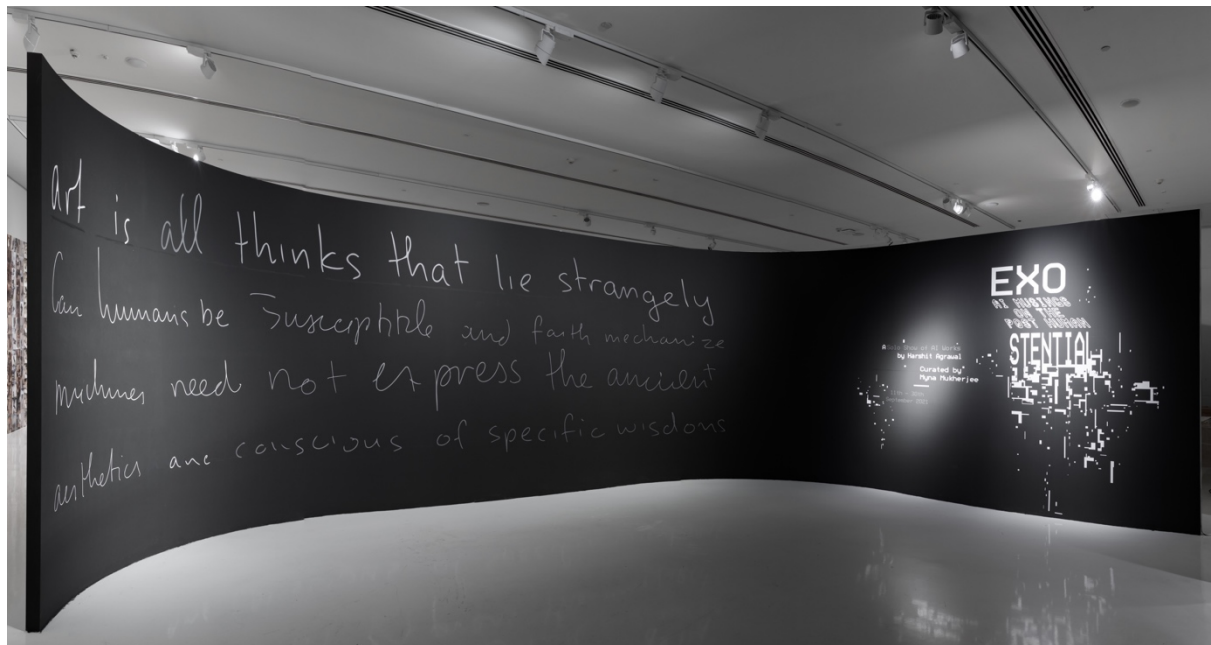 art is all thinks that lie strangely
Can humans be Susceptible and faith mechanize
machines need not express the ancient
aesthetics are conscious of specific wisdoms
EXO
AI MUSINGS
ON THE
POST HUMAN
STENTIAL
A Solo Show of AI Works
by Harshit Agrawal
Curated by
Myna Mukherjee
September